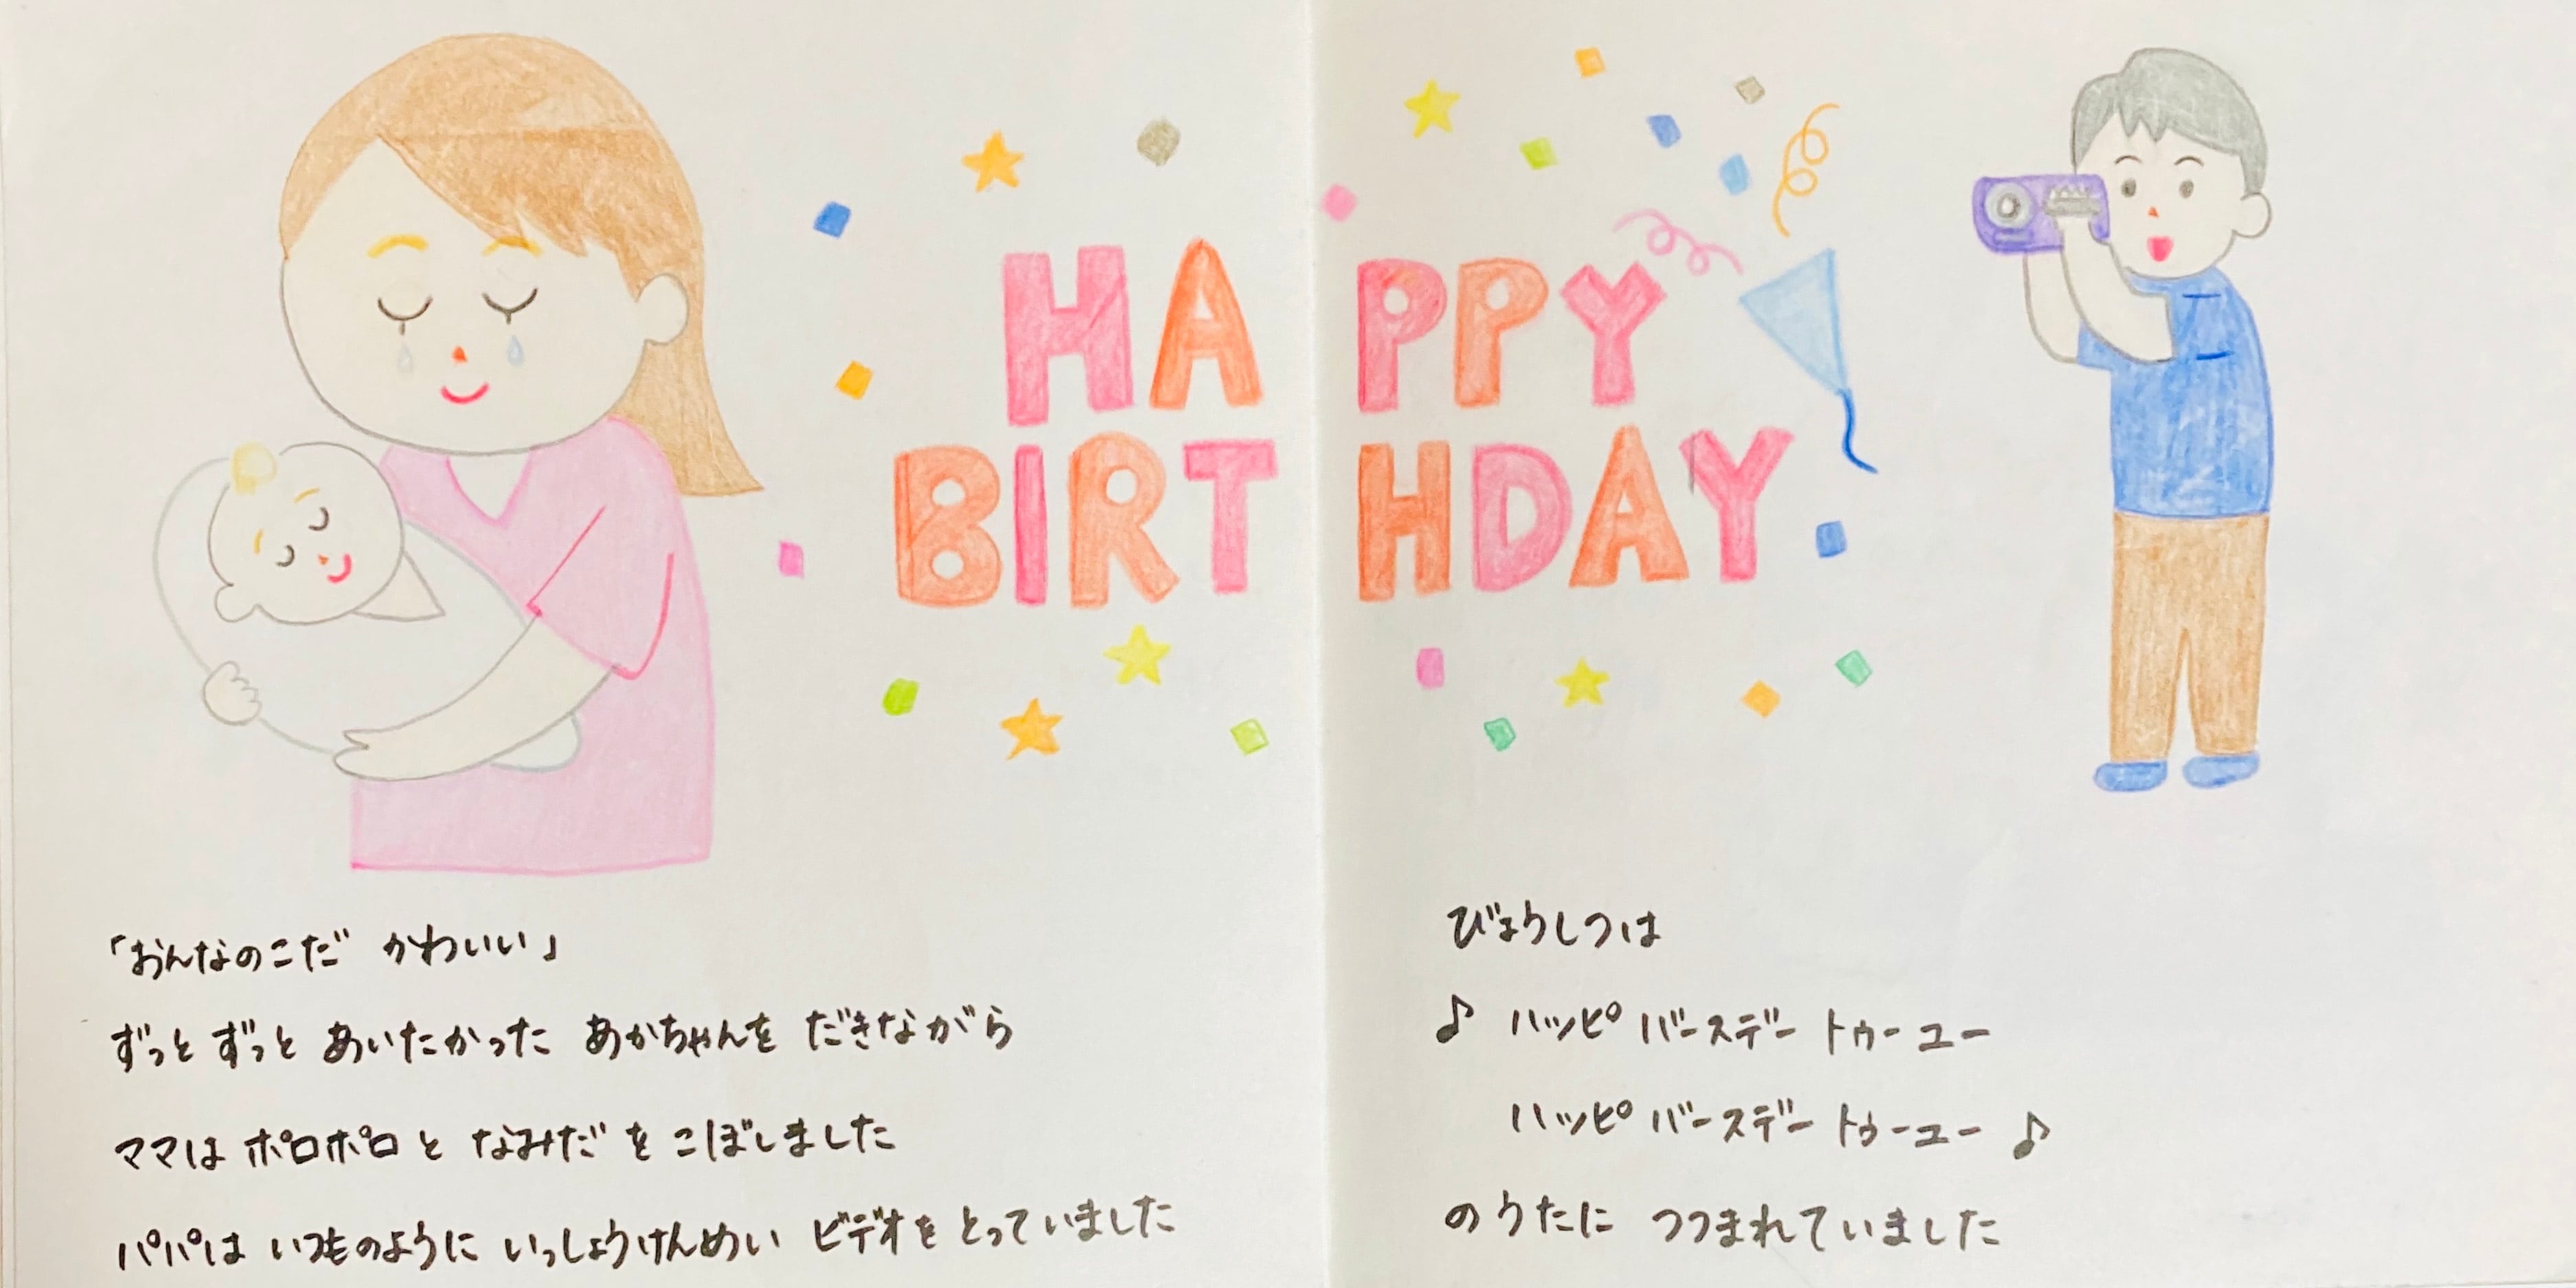 HAPPY
BIRTHDAY
「おんなのこだ かわいい」
ずっと ずっと あいたかった あかちゃんを だきながら
ママは ポロポロ と なみだ を こぼしました
パパは いつものように いっしょうけんめい ビデオを とっていました
びょうしつは
♪ ハッピ バースデー トゥーユー
ハッピ バースデー トゥーユー ♪
のうたに つつまれていました